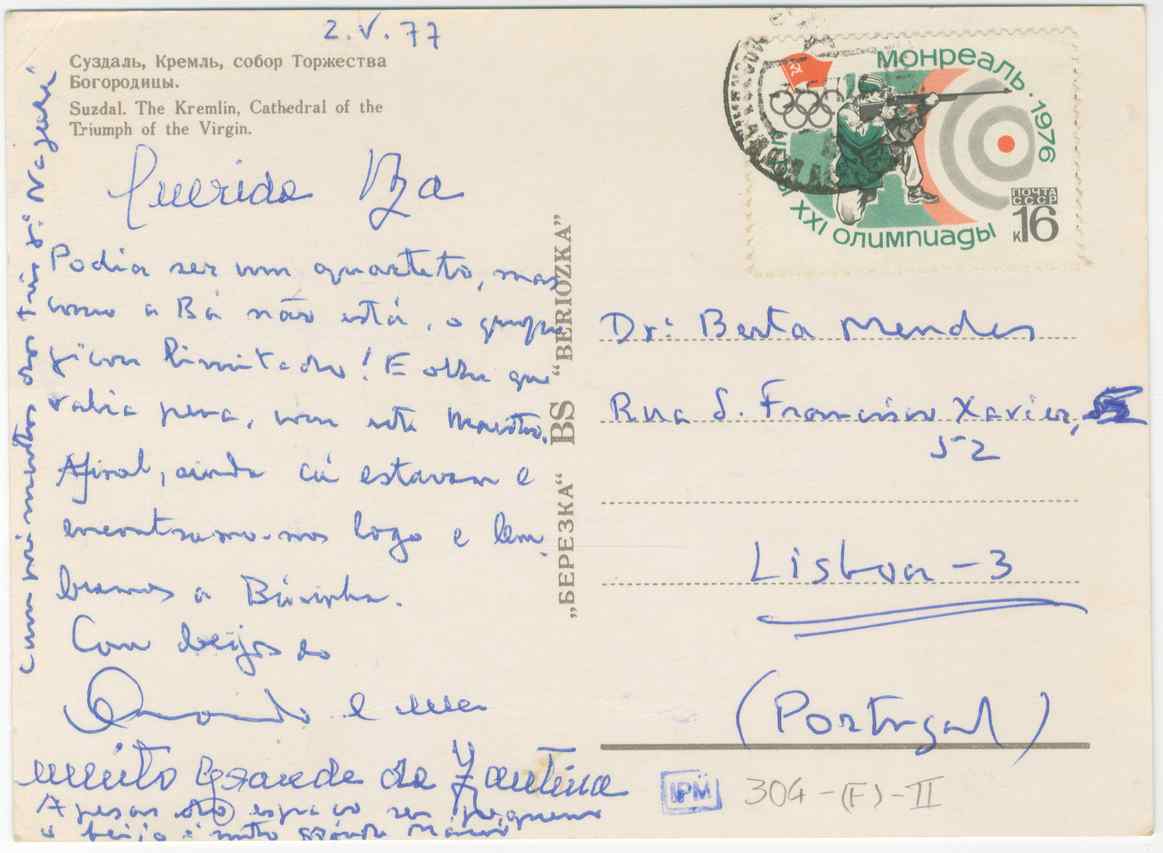 2.V.77
Суздаль, Кремль, собор Торжества
Богородицы.
Suzdal. The Kremlin, Cathedral of the
Triumph of the Virgin.
Querida
Podia ser um quarteto, mas
como a Bá não está, o grupo
ficou limitado! E olha que
valia pena, com este Maestro.
Afinal, ainda cá estavam e
encontramo-nos logo e lem
bramos a Bázinha.
Com beijos do
e um
muito grande da
Apesar do espaço ser pequeno
o beijo é muito
cumprimentos dos três
„БЕРЕЗКА“ BS “BERIOZKA”
МОНРЕАЛЬ · 1976
ИГРЫ XXI ОЛИМПИАДЫ
ПОЧТА
СССР
к16
Dr: Berta Mendes
Rua S. Francisco Xavier,
52
Lisboa-3
(Portugal)
IPM
304-(F)-II